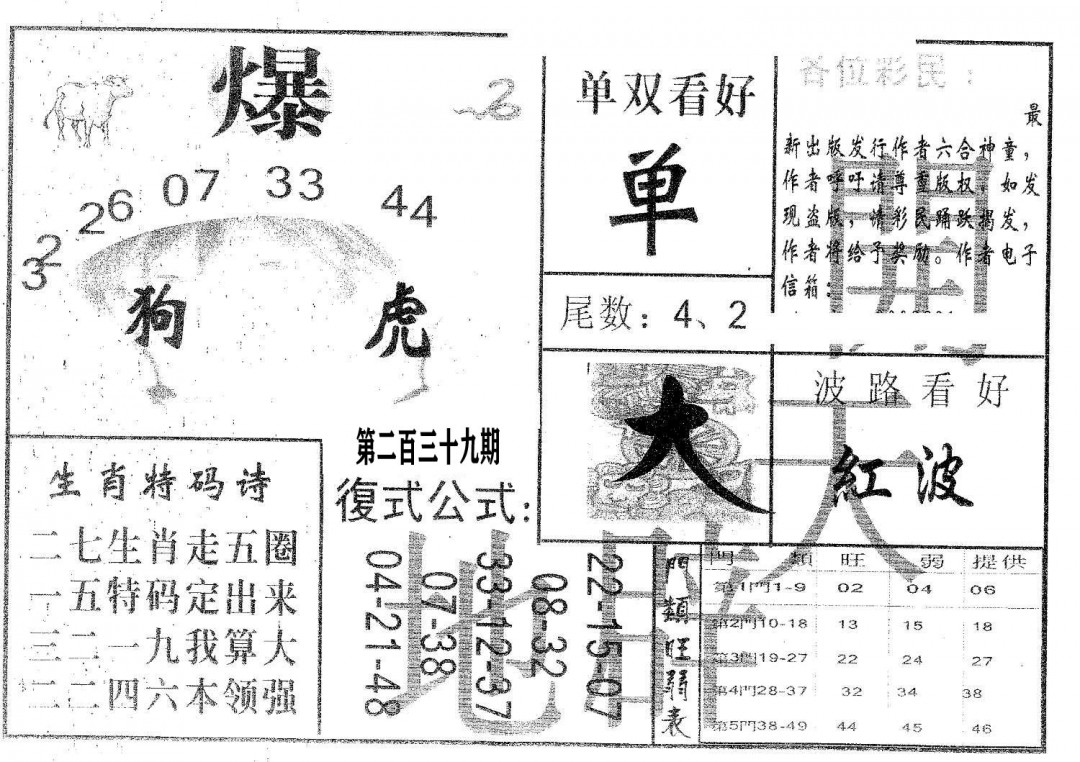 爆
2
32
26
07
33
44
狗
虎
单双看好
单
尾数：4、2
各位彩民：
最
新出版发行作者六合神童，
作者呼吁请尊重版权，如发
现盗版，情彩民踊跃揭发，
作者将给予奖励。作者电子
信箱：
大
波路看好
紅波
第二百三十九期
復式公式：
22-15-07
08-32
33-12-37
07-38
04-21-48
生肖特码诗
二七生肖走五圈
一五特码定出来
三二一九我算大
二二四六本领强
門類旺弱表
門類 旺 弱 提供
第1門1-9 02 04 06
第2門10-18 13 15 18
第3門19-27 22 24 27
第4門28-37 32 34 38
第5門38-49 44 45 46